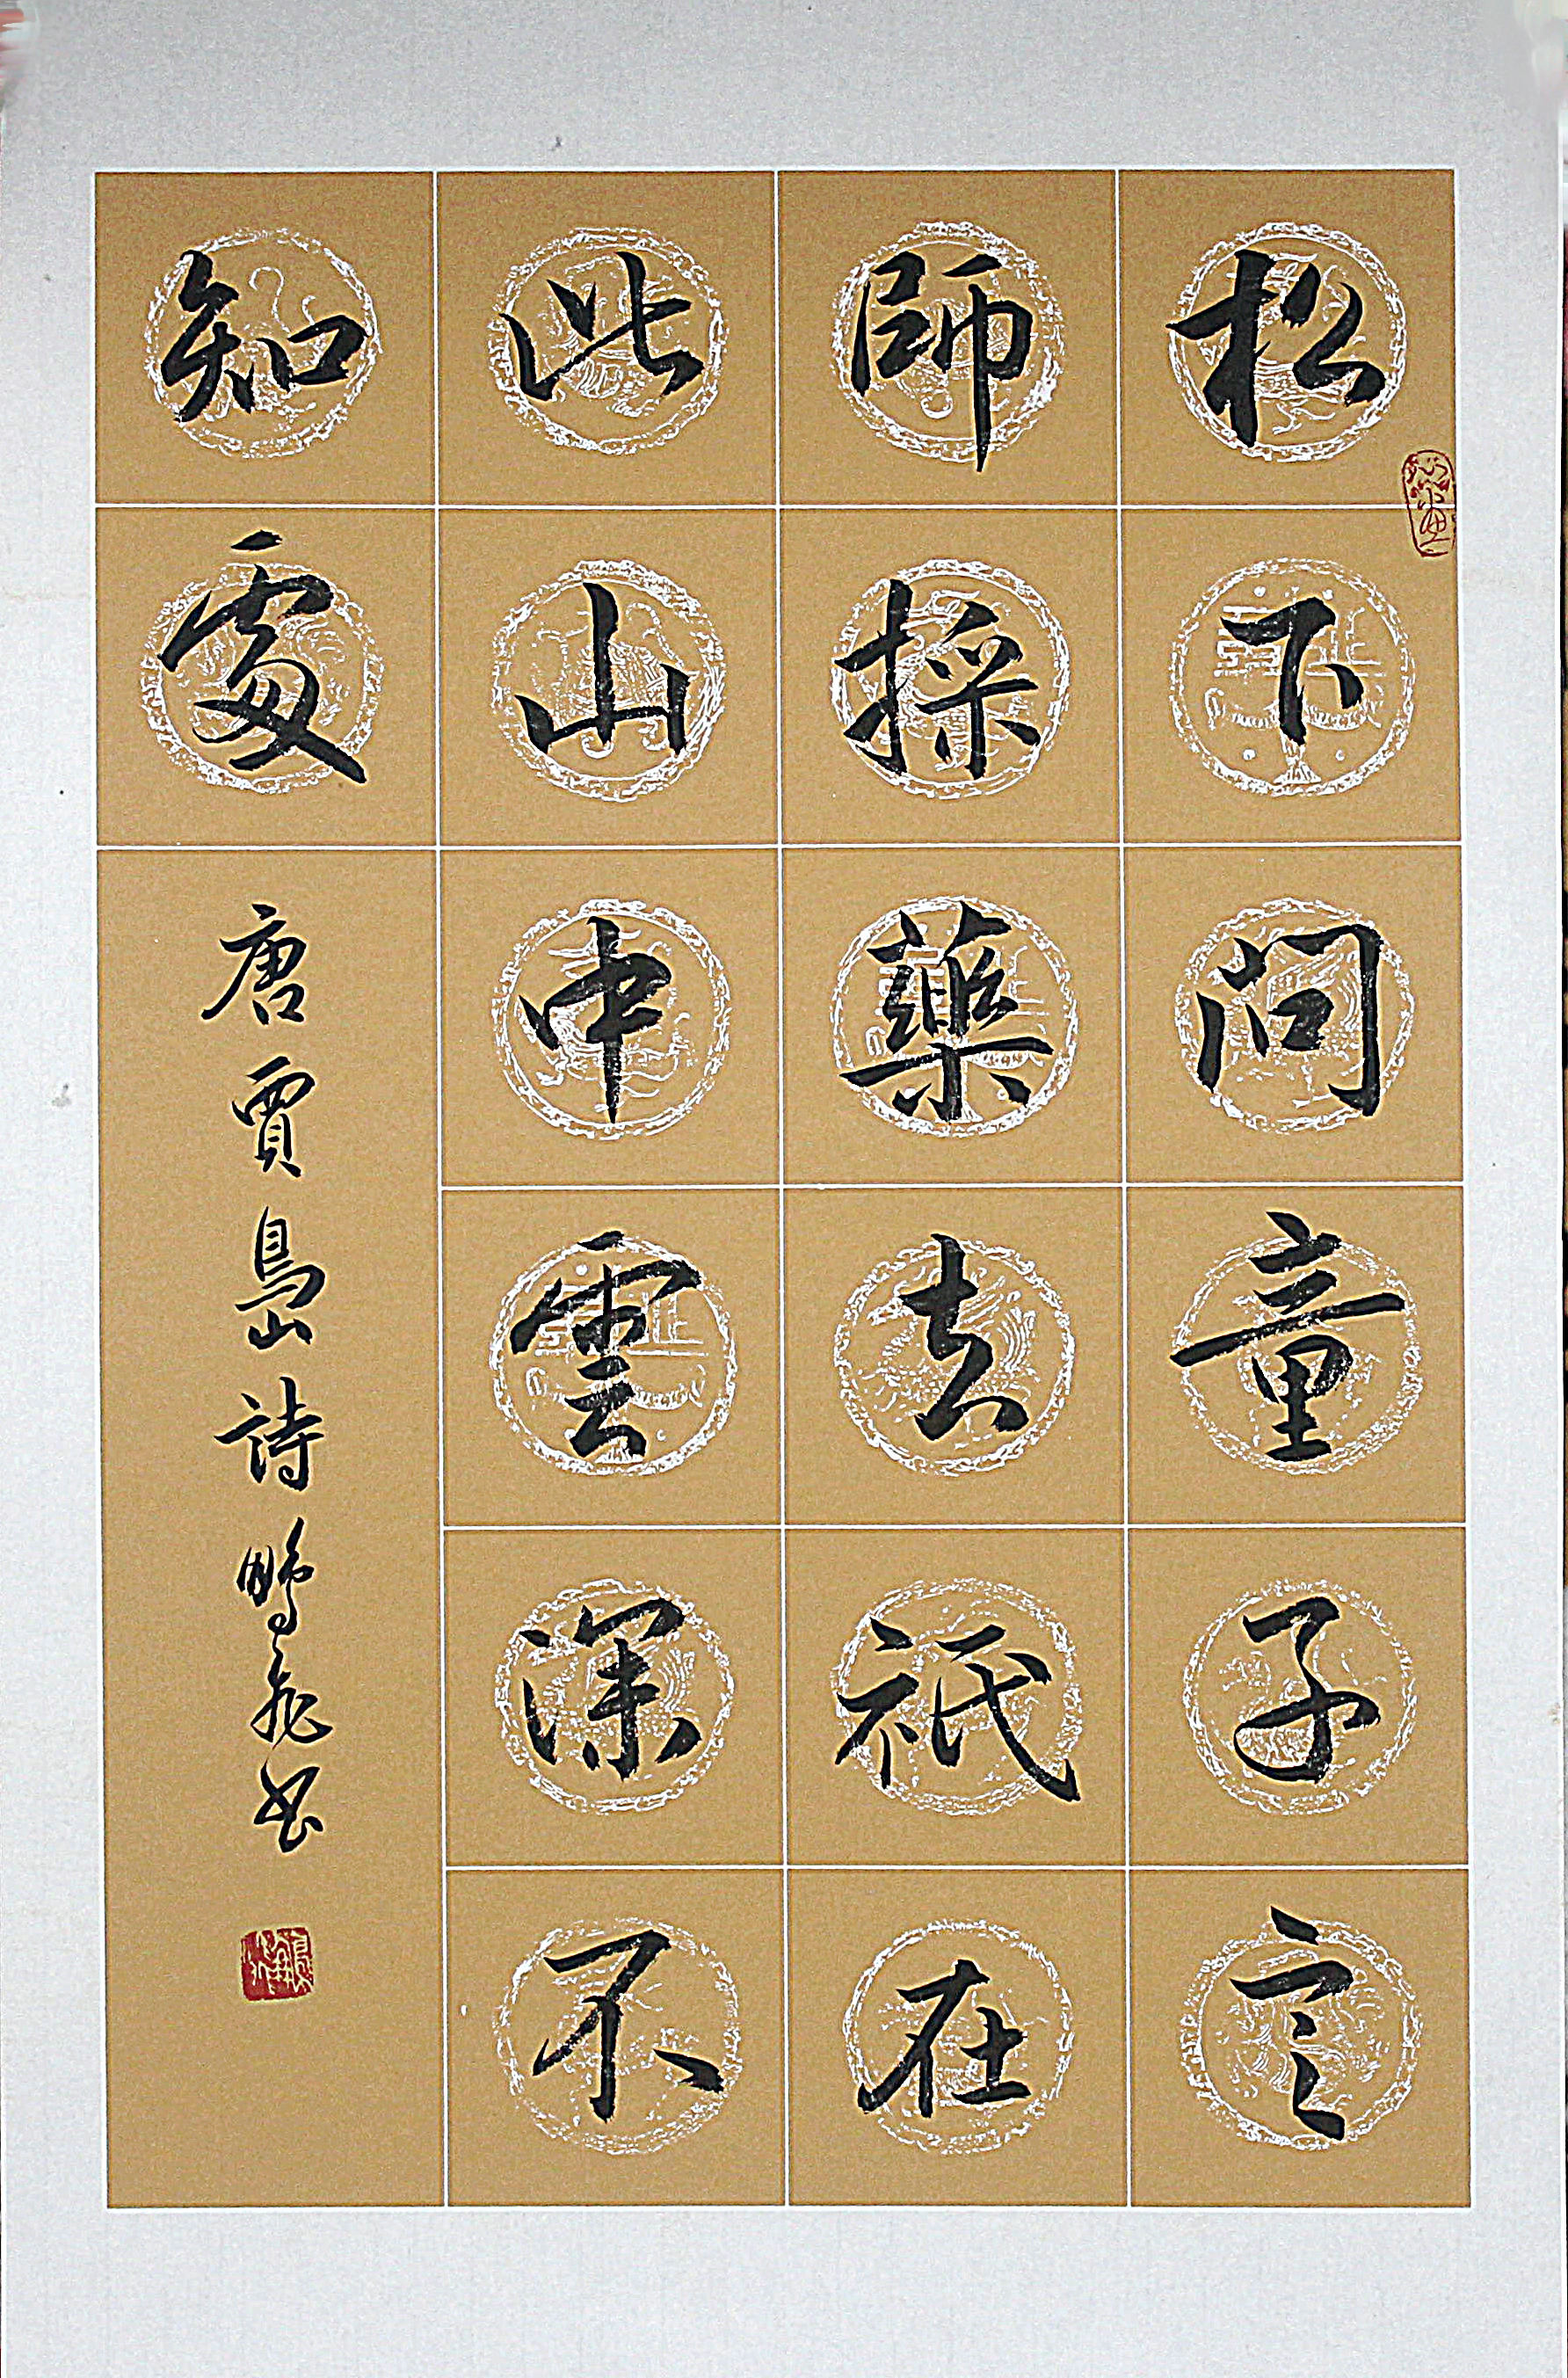 松下問童子言
師採藥去祇在
此山中雲深不
知處
唐賈島詩鵬飛书